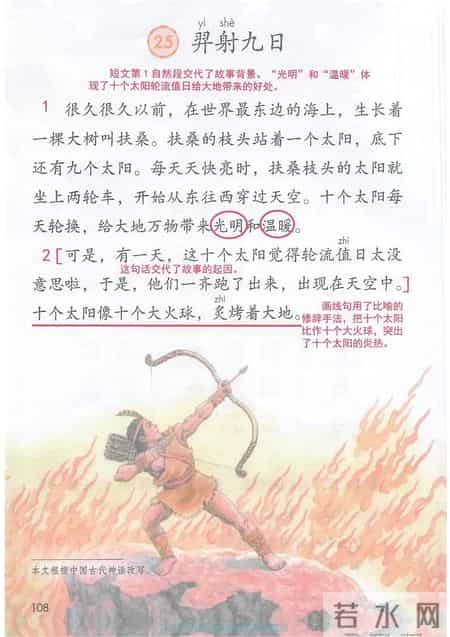 yì shè
25 羿射九日
短文第1自然段交代了故事背景。“光明”和“温暖”体
现了十个太阳轮流值日给大地带来的好处。
1 很久很久以前，在世界最东边的海上，生长着
一棵大树叫扶桑。扶桑的枝头站着一个太阳，底下
还有九个太阳。每天天快亮时，扶桑枝头的太阳就
坐上两轮车，开始从东往西穿过天空。十个太阳每
天轮换，给大地万物带来光明和温暖。
zhí
2[可是，有一天，这十个太阳觉得轮流值日太没
这句话交代了故事的起因。
意思啦，于是，他们一齐跑了出来，出现在天空中。]
zhì
十个太阳像十个大火球，炙烤着大地。
画线句用了比喻的
修辞手法，把十个太阳
比作十个大火球，突出
了十个太阳的炎热。
本文根据中国古代神话改写。
108
若水网